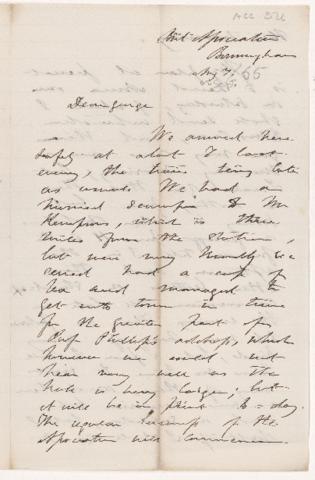 Brit Association
Birmingham
Sep 7. 65
Dear George
We arrived here
safely at about 7 last
eveng, the trains being late
as usual. We had a
hurried scamper to Mr
Kempson's, which is three
miles from the station,
but were very kindly re
ceived had a cup of
tea and managed to
get into town in time
for the greater part of
Prof Phillips's address, which
however we could not
hear very well as the
hall is very large; but
it will be in print to-day.
The regular business of the
Association will commence